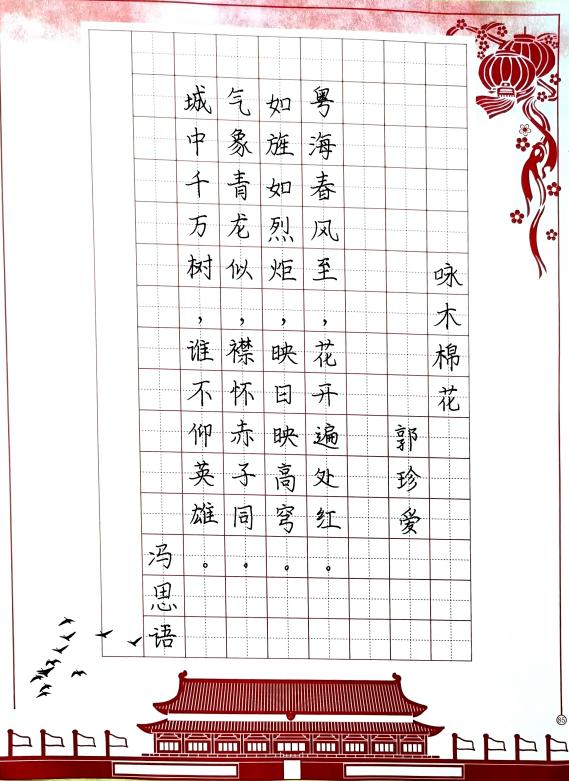 咏木棉花
郭珍爱
粤海春风至，花开遍处红。
如旌如烈炬，映日映高穹。
气象青龙似，襟怀赤子同。
城中千万树，谁不仰英雄。
冯思语